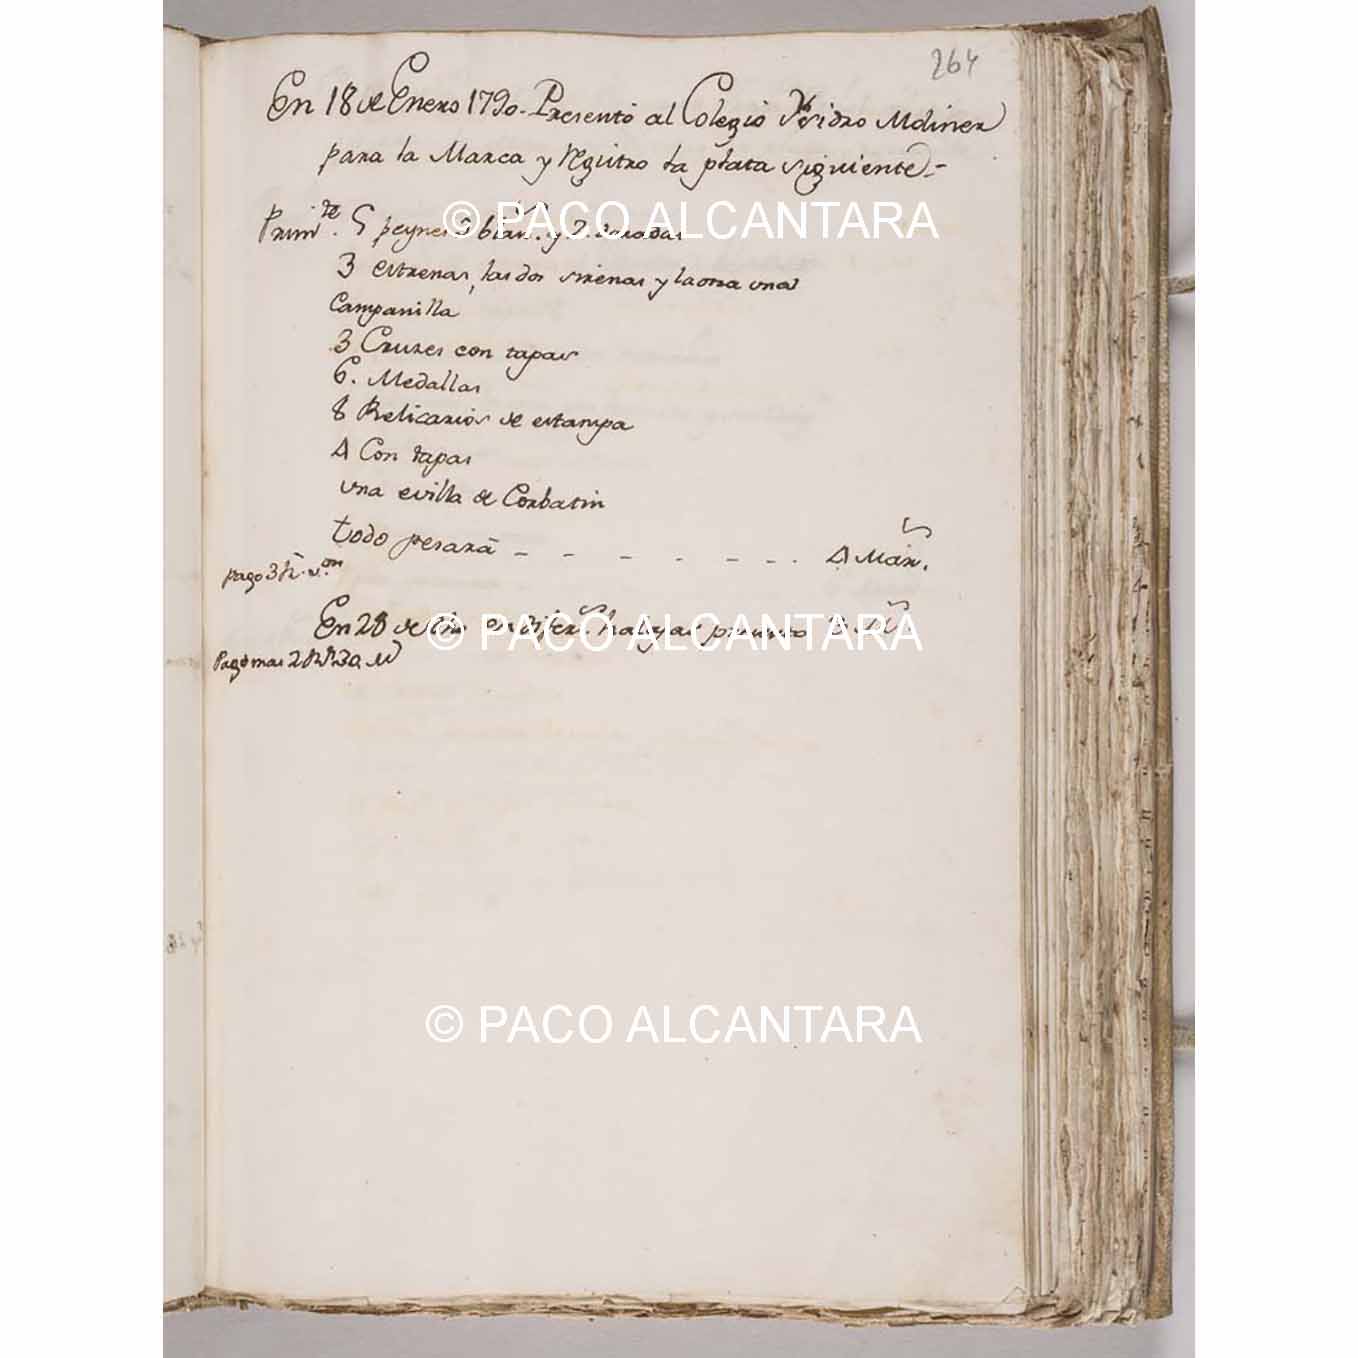 264
En 18 de Enero 1790. Presentó al Colegio Ysidro Moliner
para la Marca y registro la plata siguiente -
Primte. 5 peynes blans. y 2. doradas
© PACO ALCANTARA
3 estrenas, las dos sirenas y la otra una
Campanilla
3 Cruzes con tapas
6. Medallas
8 Relicarios de estampa
4 Con tapas
una evilla de Corbatin
todo pesará - - - - - - - . 4 Mars.
pago 3 von
En 28 de en difers. halajas presento 3
© PACO ALCANTARA
Pago mas 2
© PACO ALCANTARA